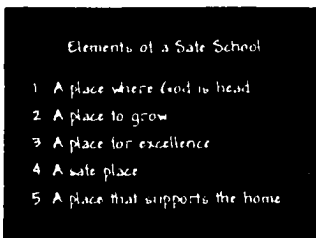 Elements of a Safe School
1 A place where God is head
2 A place to grow
3 A place for excellence
4 A safe place
5 A place that supports the home